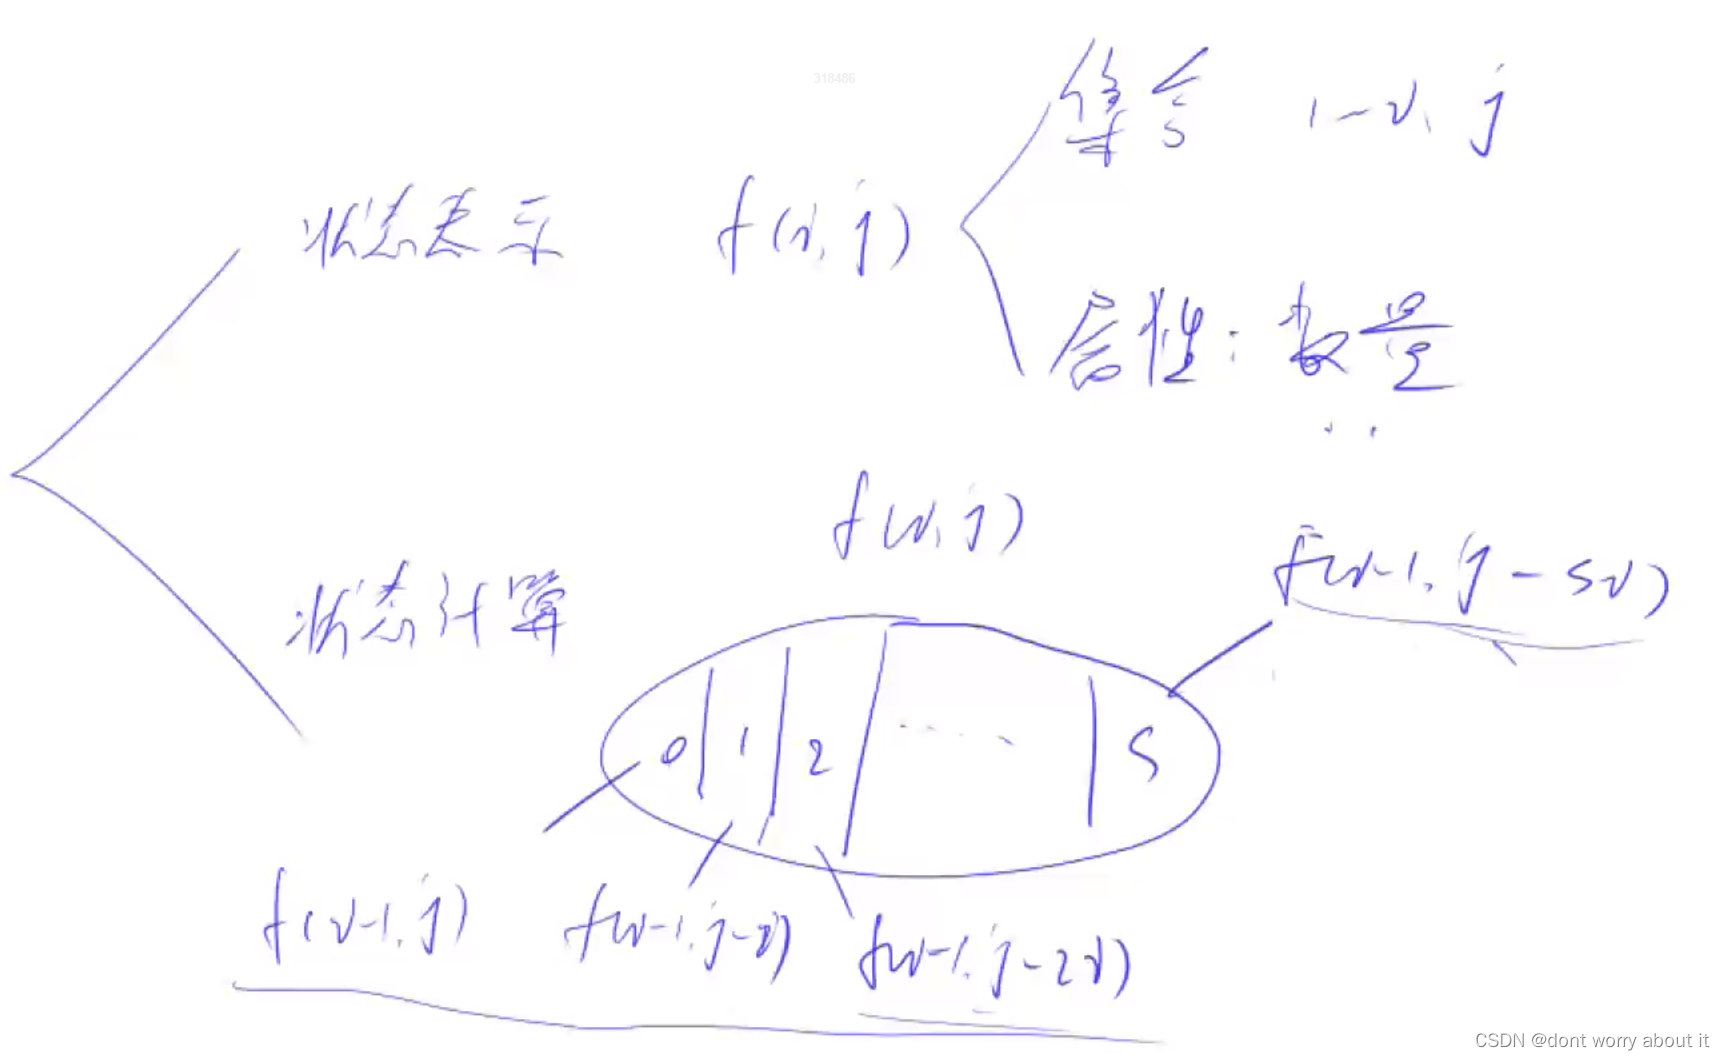 318486
集合 1~i, j
状态表示 f(i, j)
属性:数量
f(i, j)
f(i-1, j-si)
状态计算
0 1 2 ···· S
f(i-1, j) f(i-1, j-i) f(i-1, j-2i)
CSDN @dont worry about it